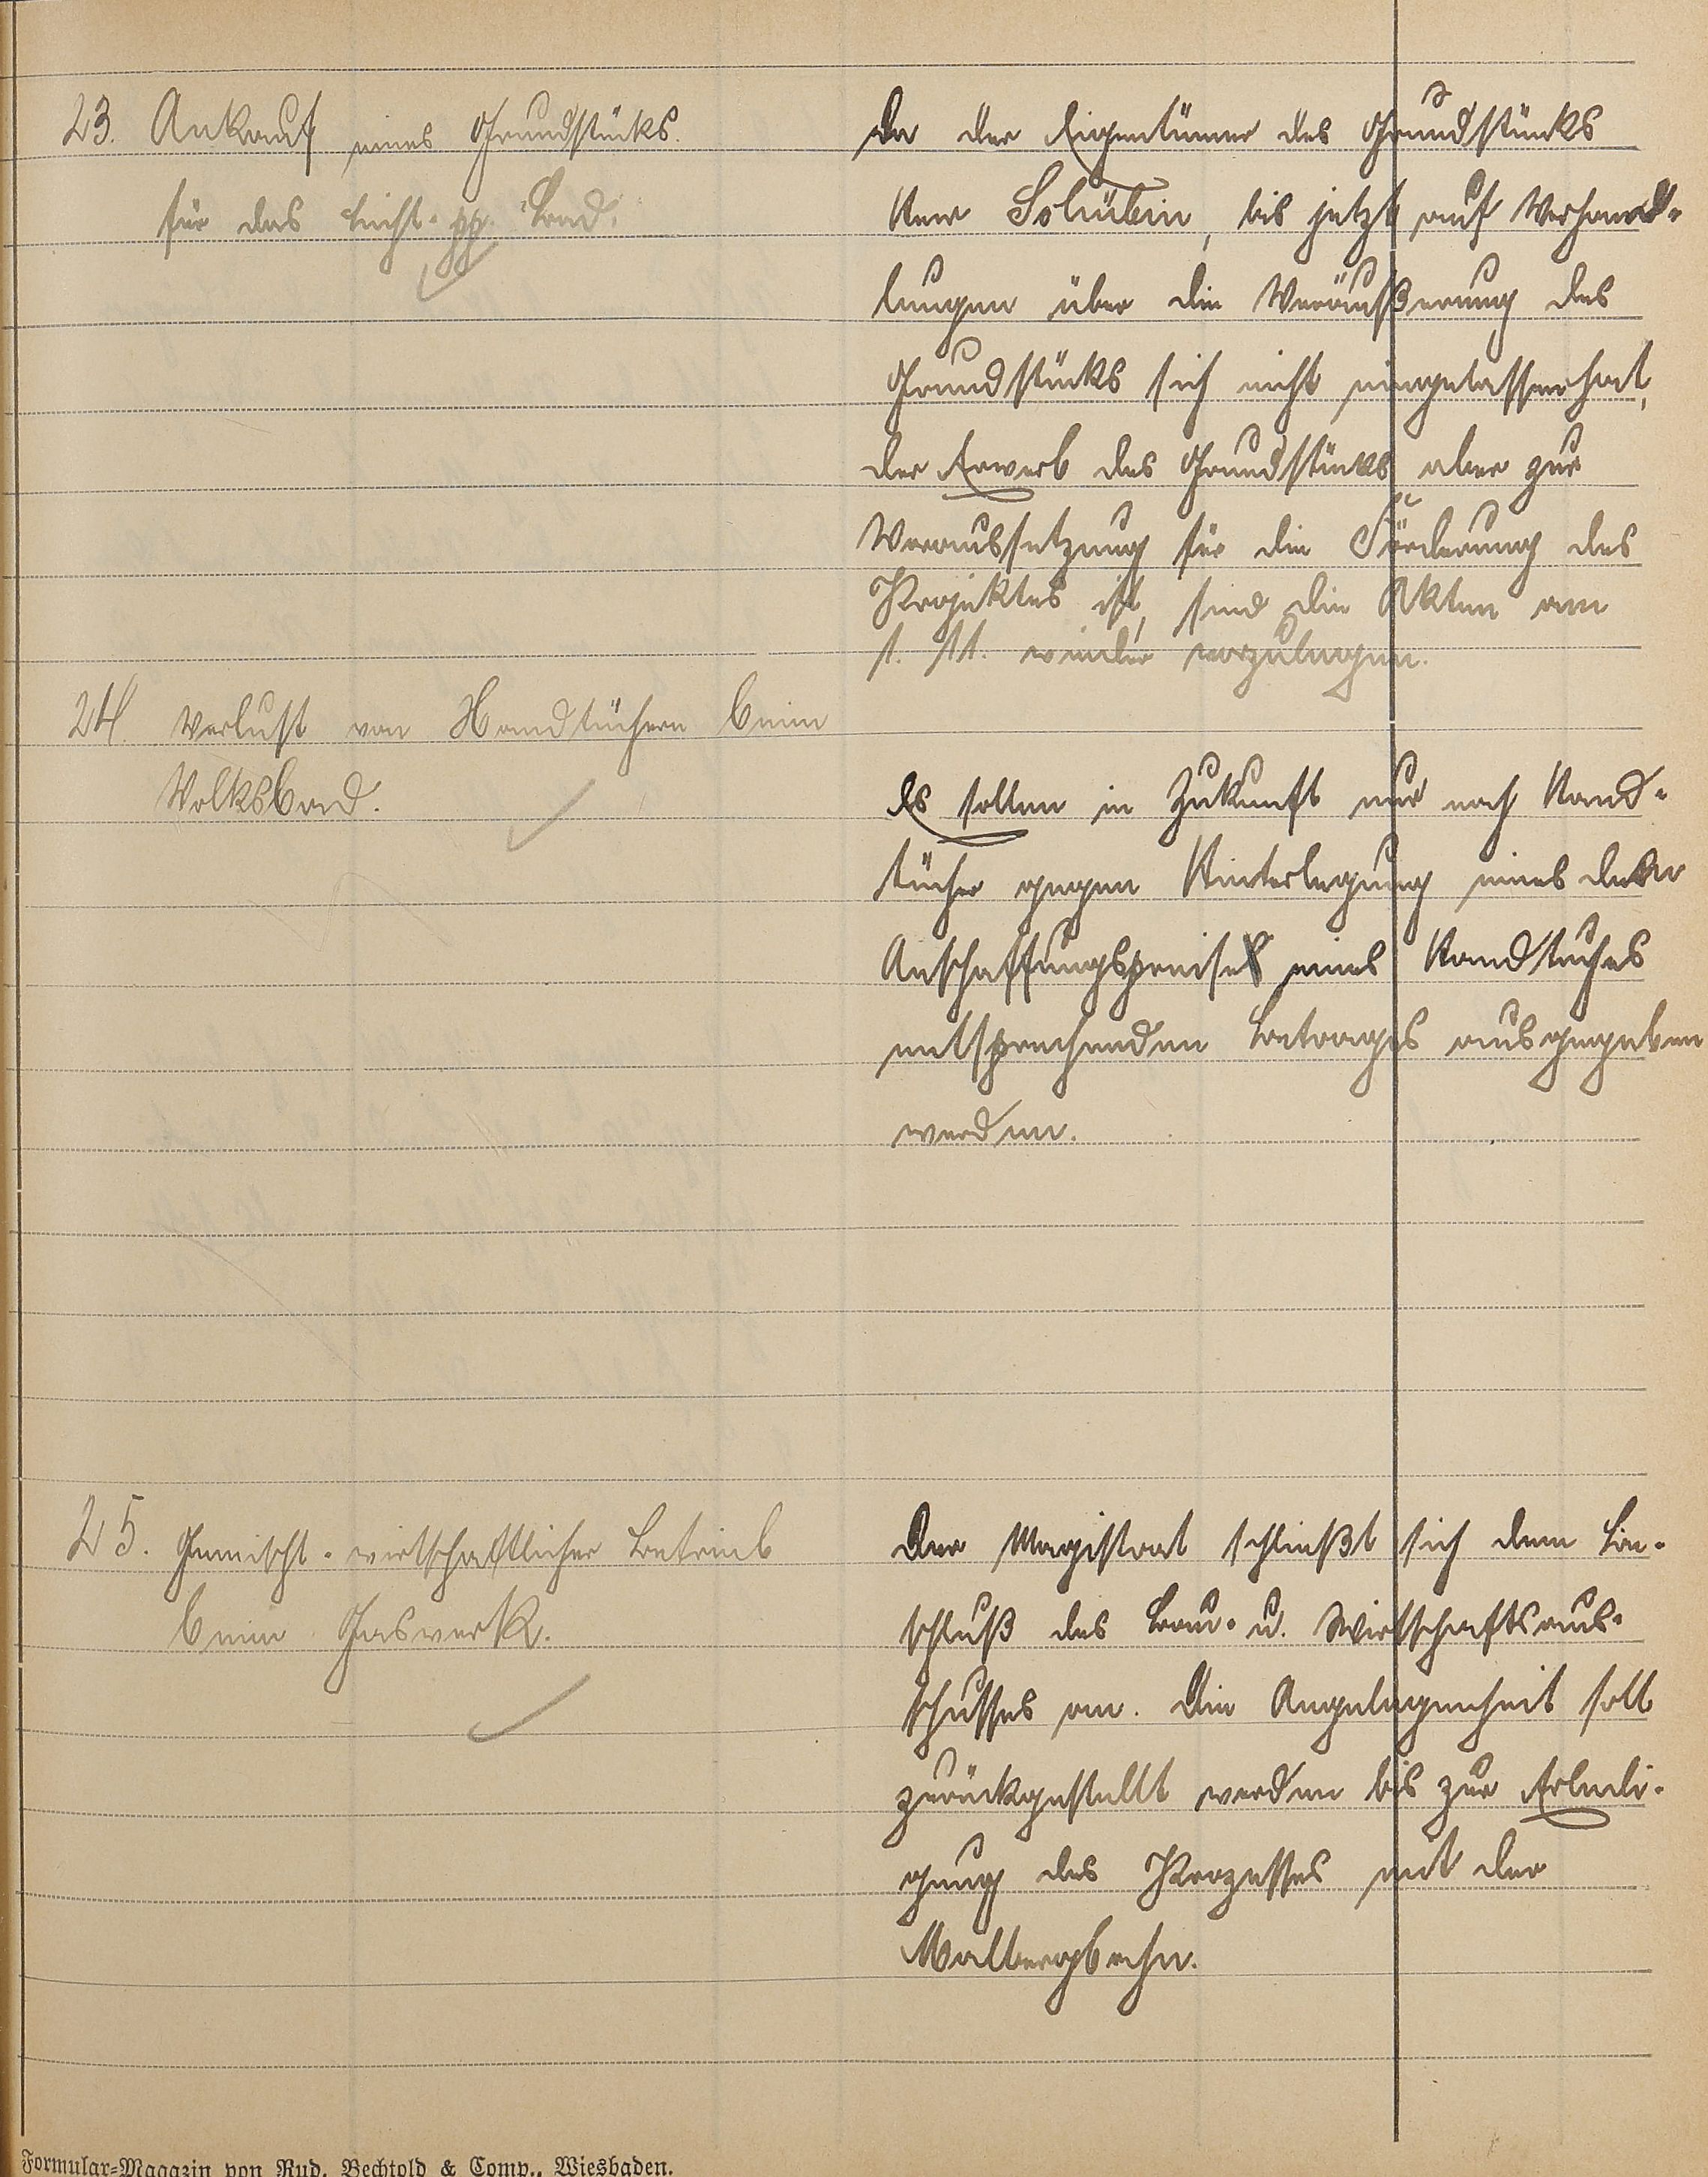 23. Ankauf eines Grundstücks.
für das Licht- pp. Bad.
Da der Eigentümer des Grundstücks
Herr Schübin, bis jetzt auf Verhand-
lungen über die Veräußerung des
Grundstücks sich nicht eingelassen hat,
der Erwerb des Grundstücks aber zur
Voraussetzung für die Förderung des
Projektes ist, sind die Akten am
1. 11. wieder vorzulegen.
24. Verlust von Handtüchern beim
Volksbad.
Es sollen in Zukunft nur noch Hand-
tücher gegen Hinterlegung eines dem
Anschaffungspreise eines Handtuches
entsprechenden Betrages ausgegeben
werden.
25. Gemischt-wirtschaftlicher Betrieb
beim Gaswerk.
Der Magistrat schließt sich dem Be-
schluß des Bau- u. Wirtschaftsaus-
schusses an. Die Angelegenheit soll
zurückgestellt werden bis zur Erledi-
gung des Prozesses mit der
Malbergbahn.
Formular-Magazin von Rud. Bechtold & Comp., Wiesbaden.